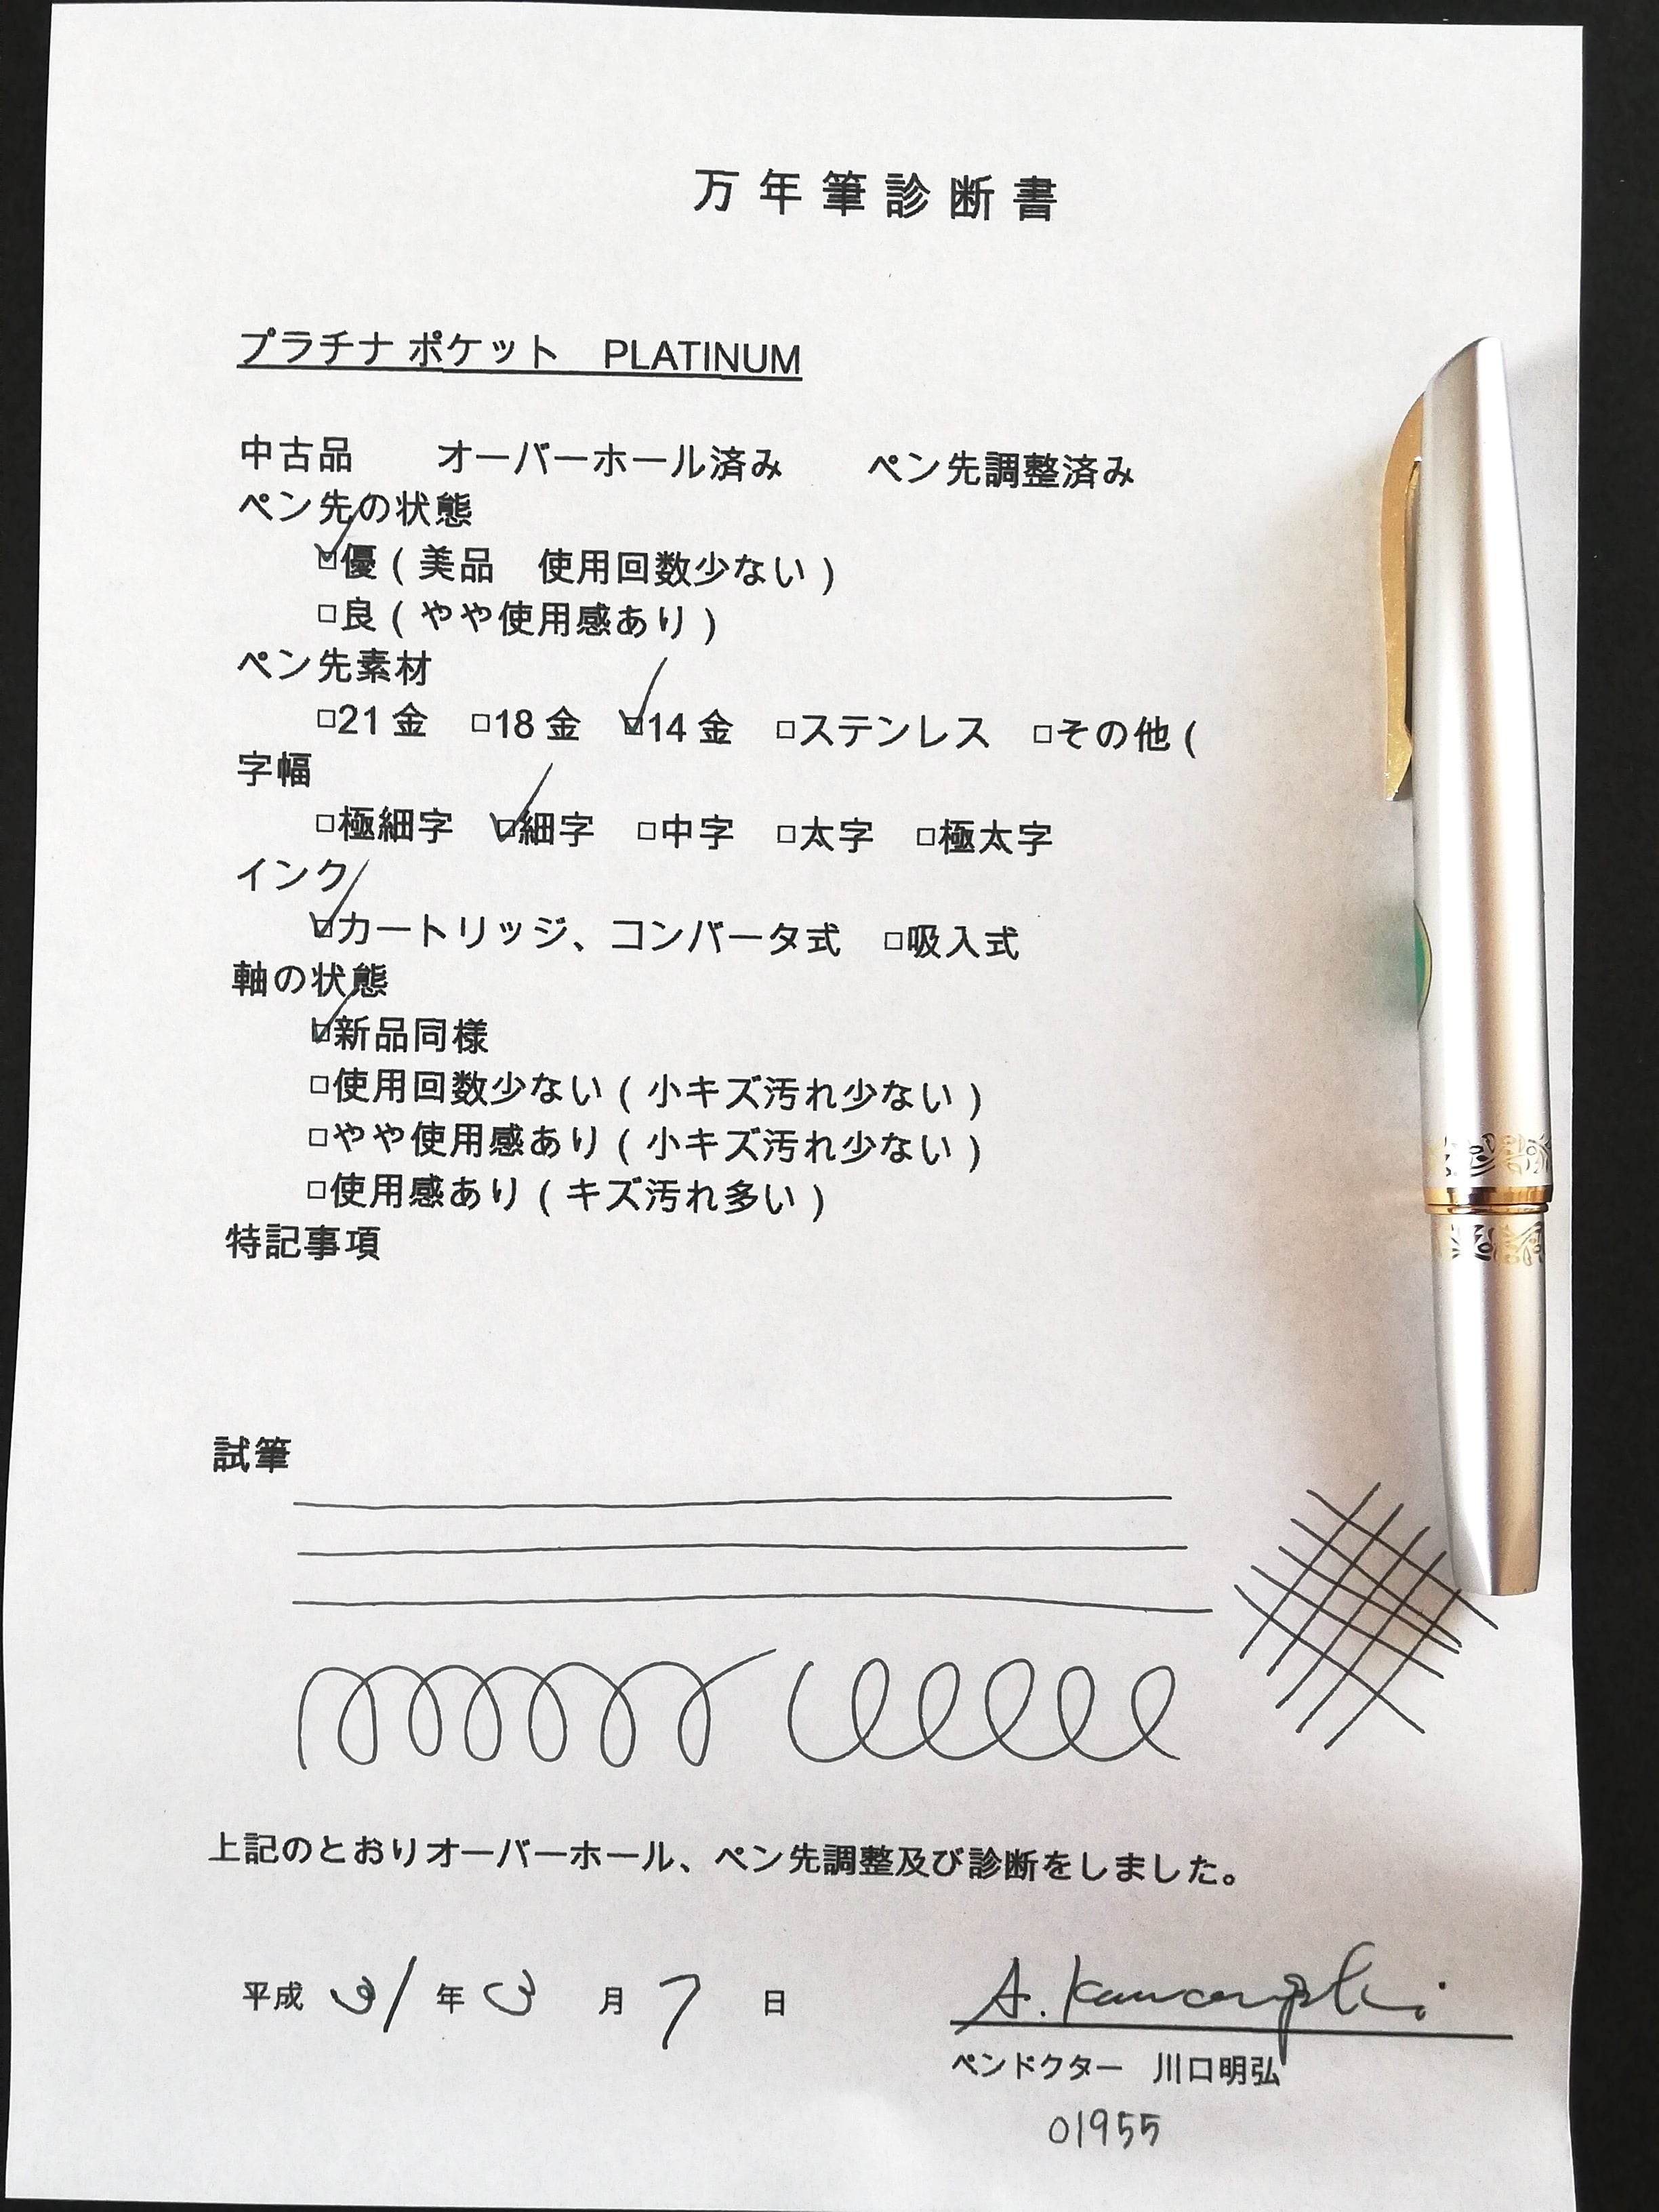 万年筆診断書
プラチナ ポケット　PLATINUM
中古品　オーバーホール済み　ペン先調整済み
ペン先の状態
☑優(美品　使用回数少ない)
□良(やや使用感あり)
ペン先素材
□21金　□18金　☑14金　□ステンレス　□その他(
字幅
□極細字　☑細字　□中字　□太字　□極太字
インク
☑カートリッジ、コンバータ式　□吸入式
軸の状態
☑新品同様
□使用回数少ない(小キズ汚れ少ない)
□やや使用感あり(小キズ汚れ少ない)
□使用感あり(キズ汚れ多い)
特記事項
試筆
上記のとおりオーバーホール、ペン先調整及び診断をしました。
平成 31 年 3 月 7 日
A. Kawaguchi
ペンドクター　川口明弘
01955